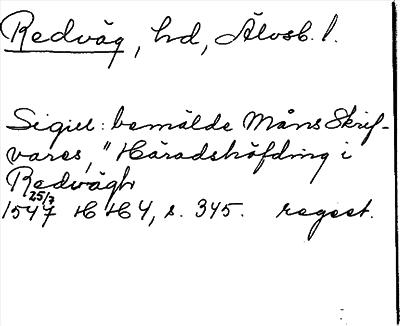 Redväg, hd, Älvsb. l.
Sigill: bemälde Måns Skrif-
vares, "Häradshöfding i
Redvägh
25/7
1547 HH4, s. 345. regest.